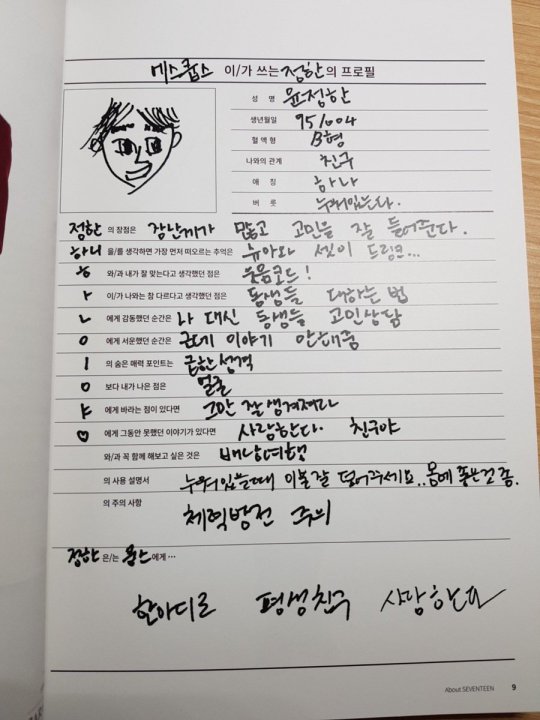 에스쿱스 이/가 쓰는 정한의 프로필
성 명 윤정한
생년월일 951004
혈 액 형 B형
나와의 관계 친구
애 칭 하니
버 릇 누워있는다.
정한 의 장점은 장난끼가 많고 고민을 잘 들어준다.
하니 을/를 생각하면 가장 먼저 떠오르는 추억은 슈아와 셋이 드링크...
ㅎ 와/과 내가 잘 맞는다고 생각했던 점은 웃음코드!
ㅏ 이/가 나와는 참 다르다고 생각했던 점은 동생들 대하는 법
ㄴ 에게 감동했던 순간은 나 대신 동생들 고민상담
ㅇ 에게 서운했던 순간은 근데 이야기 안해줌
ㅣ 의 숨은 매력 포인트는 급한성격
ㅇ 보다 내가 나은 점은 얼굴
ㅑ 에게 바라는 점이 있다면 그만 잘생겨져라
♡ 에게 그동안 못했던 이야기가 있다면 사랑한다. 친구야
와/과 꼭 함께 해보고 싶은 것은 배낭여행
의 사용 설명서 누워있을때 이불 잘 덮어주세요.. 몸에 좋은건 좀.
의 주의 사항 체력방전 주의
정한 은/는 쿱스 에게 …
한마디로 평생친구 사랑한다
About SEVENTEEN 9